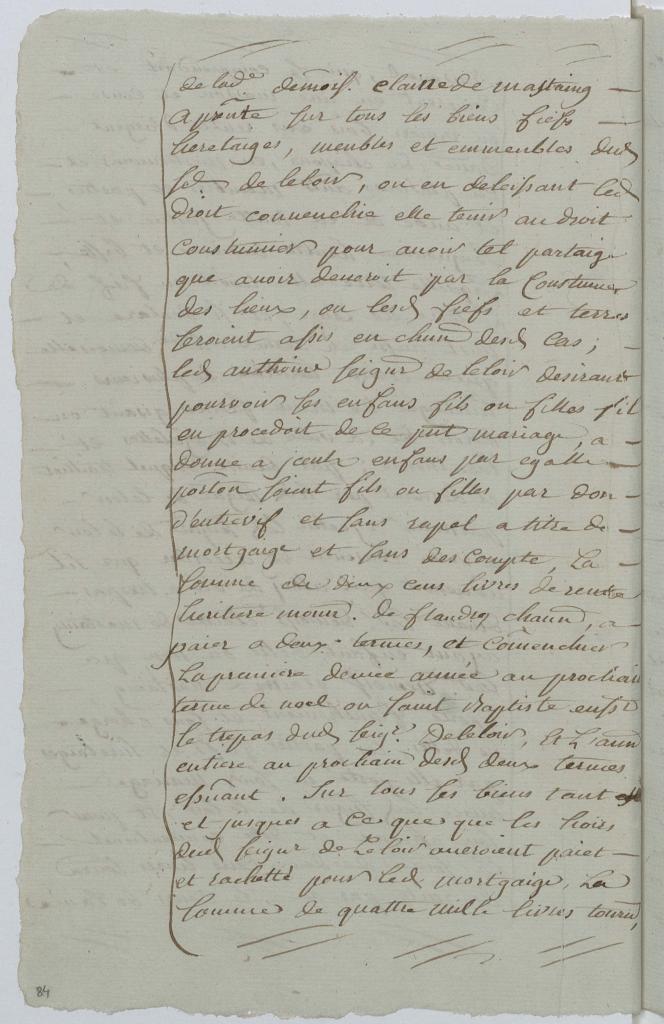 de lad.e demois. claire de mastaing —
a prnte sur tous les biens fiefs —
heretaiges, meubles et emmeubles dud
sd. de leloir, ou en delaissant led
droit conuenchie elle tenir au droit
coustumier pour auoir tel partaige
que auoir deueroit par la Coustume
des lieux, ou lesd fiefs et terres
seroient assis en chun desd Cas; —
led anthoine seignr de leloir desirant
pouruoir ses enfans fils ou filles s'il
en procedoit de ce pnt mariage, a —
donne a jceulx enfans par egalle —
portion soient fils ou filles par don —
d'entrevif et sans rapel a titre de —
mortgaige et sans descompte, La —
somme de deux cens livres de rente
heritiere monn. de flandres chaun, a —
paier a deux termes, et Comenchier
La premiere demie année au prochain
terme de noel ou saint Baptiste enss.t
le trepas dud seigr. Deleloir, Et L'ann
entiere au prochain desd deux termes
essuant. Sur tous ses biens tant
et jusques a ce que que les hoirs
dud seignr de Leloir aueroient paiet —
et rachetté pour led mortgaige, La
somme de quattre mille livres tourn,
84